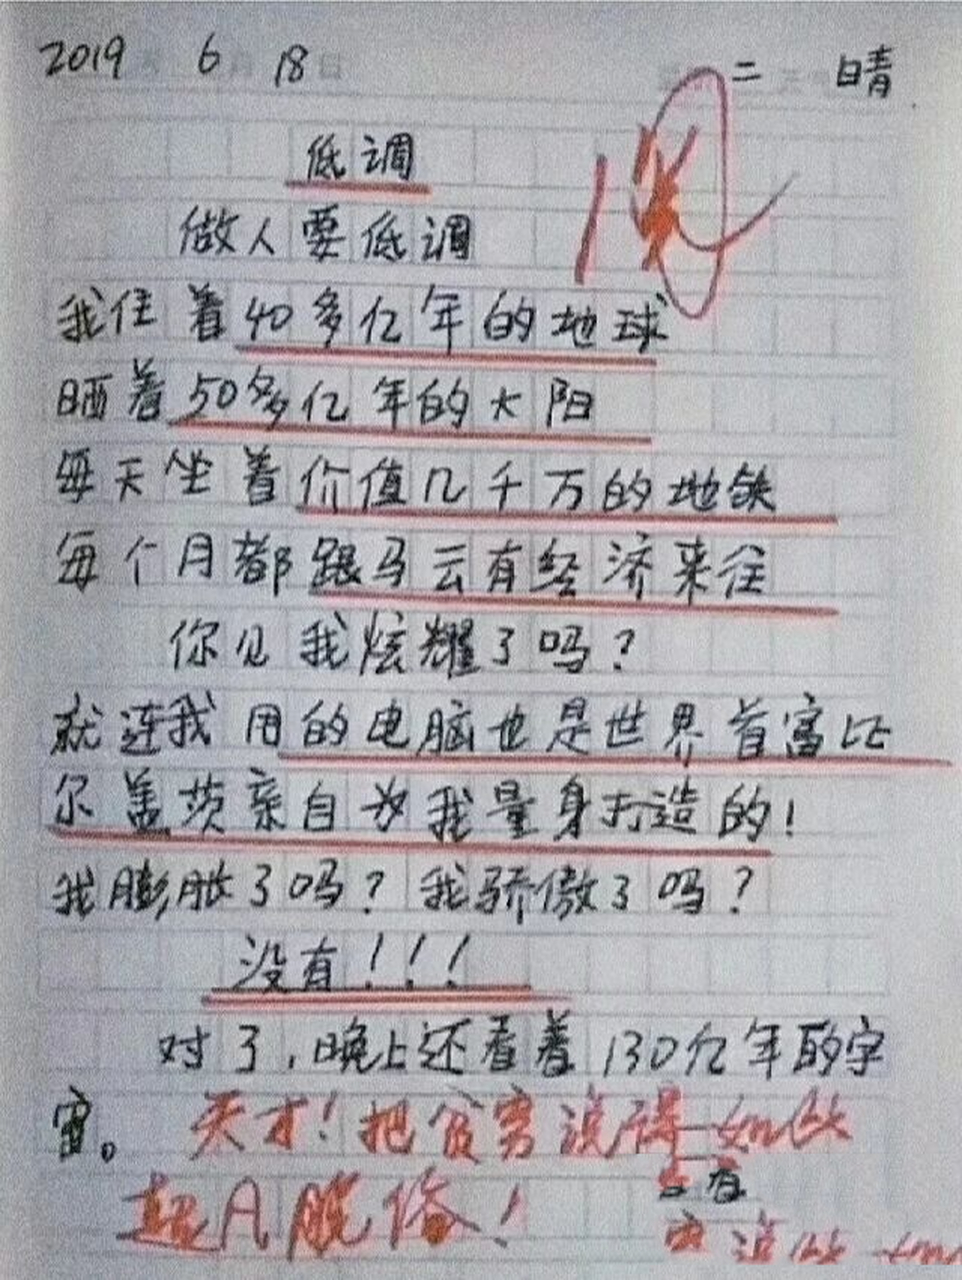 2019年 6月 18日 二 晴
低调
做人要低调
我住着40多亿年的地球
晒着50多亿年的太阳
每天坐着价值几千万的地铁
每个月都跟马云有经济来往
你见我炫耀了吗?
就连我用的电脑也是世界首富比
尔盖茨亲自为我量身打造的!
我膨胀了吗?我骄傲了吗?
没有!!!
对了,晚上还看着130亿年的宇
宙。天才!把贫穷说得如此
超凡脱俗!